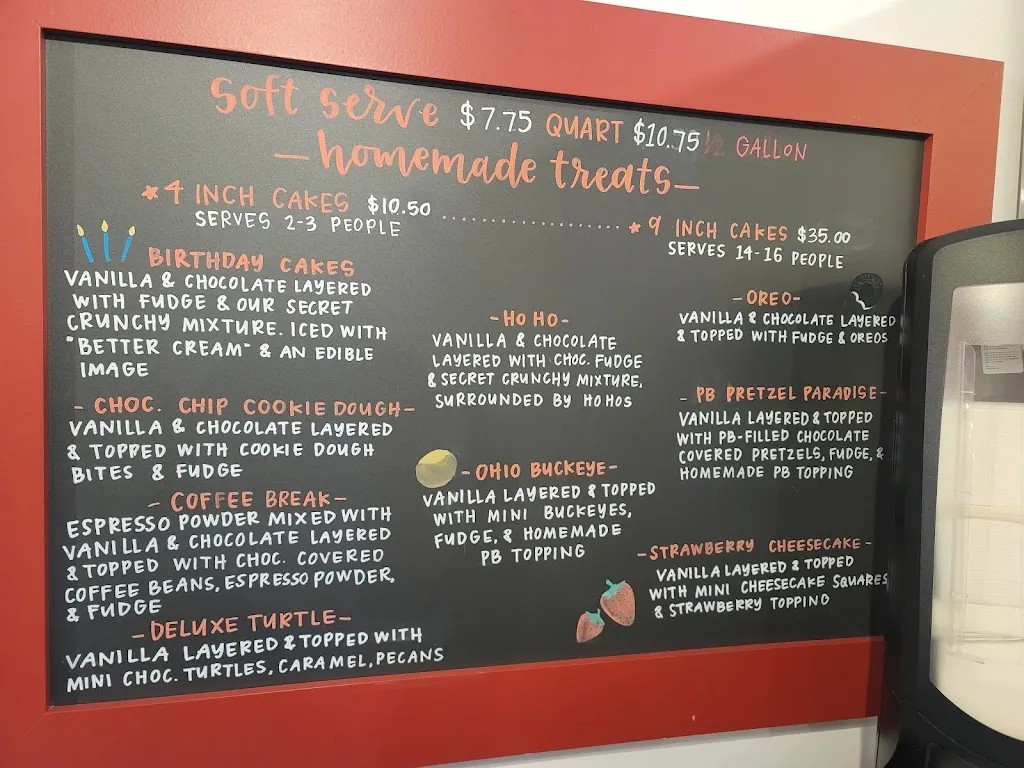 Soft Serve $7.75 QUART $10.75 1/2 GALLON
-homemade treats-
4 INCH CAKES $10.50
SERVES 2-3 PEOPLE
9 INCH CAKES $35.00
SERVES 14-16 PEOPLE
BIRTHDAY CAKES
VANILLA & CHOCOLATE LAYERED
WITH FUDGE & OUR SECRET
CRUNCHY MIXTURE. ICED WITH
"BETTER CREAM" & AN EDIBLE
IMAGE
- CHOC. CHIP COOKIE DOUGH-
VANILLA & CHOCOLATE LAYERED
& TOPPED WITH COOKIE DOUGH
BITES & FUDGE
- COFFEE BREAK-
ESPRESSO POWDER MIXED WITH
VANILLA & CHOCOLATE LAYERED
& TOPPED WITH CHOC. COVERED
COFFEE BEANS, ESPRESSO POWDER,
& FUDGE
-DELUXE TURTLE-
VANILLA LAYERED & TOPPED WITH
MINI CHOC. TURTLES, CARAMEL, PECANS
-HO HO-
VANILLA & CHOCOLATE
LAYERED WITH CHOC. FUDGE
& SECRET CRUNCHY MIXTURE,
SURROUNDED BY HOHOS
-OHIO BUCKEYE-
VANILLA LAYERED & TOPPED
WITH MINI BUCKEYES,
FUDGE, & HOMEMADE
PB TOPPING
-OREO-
VANILLA & CHOCOLATE LAYERED
& TOPPED WITH FUDGE & OREOS
- PB PRETZEL PARADISE-
VANILLA LAYERED & TOPPED
WITH PB-FILLED CHOCOLATE
COVERED PRETZELS, FUDGE, &
HOMEMADE PB TOPPING
-STRAWBERRY CHEESECAKE-
VANILLA LAYERED & TOPPED
WITH MINI CHEESECAKE SQUARES
& STRAWBERRY TOPPING